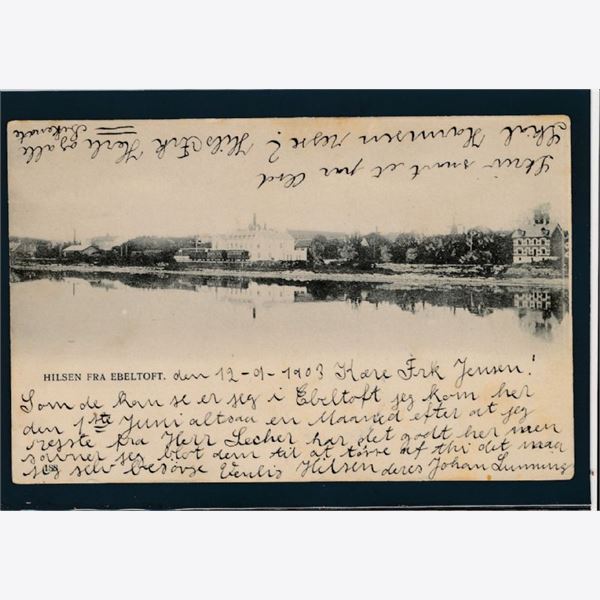 HILSEN FRA EBELTOFT. den 12-9-1903 Kære Frk Jensen!
Som de kan se er jeg i Ebeltoft jeg kom her
den 1ste Juni altsaa en Maaned efter at jeg
rejste fra Herr Lecher har det godt her men
savner jeg blot dem til at tørre af thi det maa
jeg selv besørge Venlig Hilsen deres Johan Lunning
Skriv snart et par Ord
Skal Hannsen rejse? Hils Frk Karla og alle
Bekendte